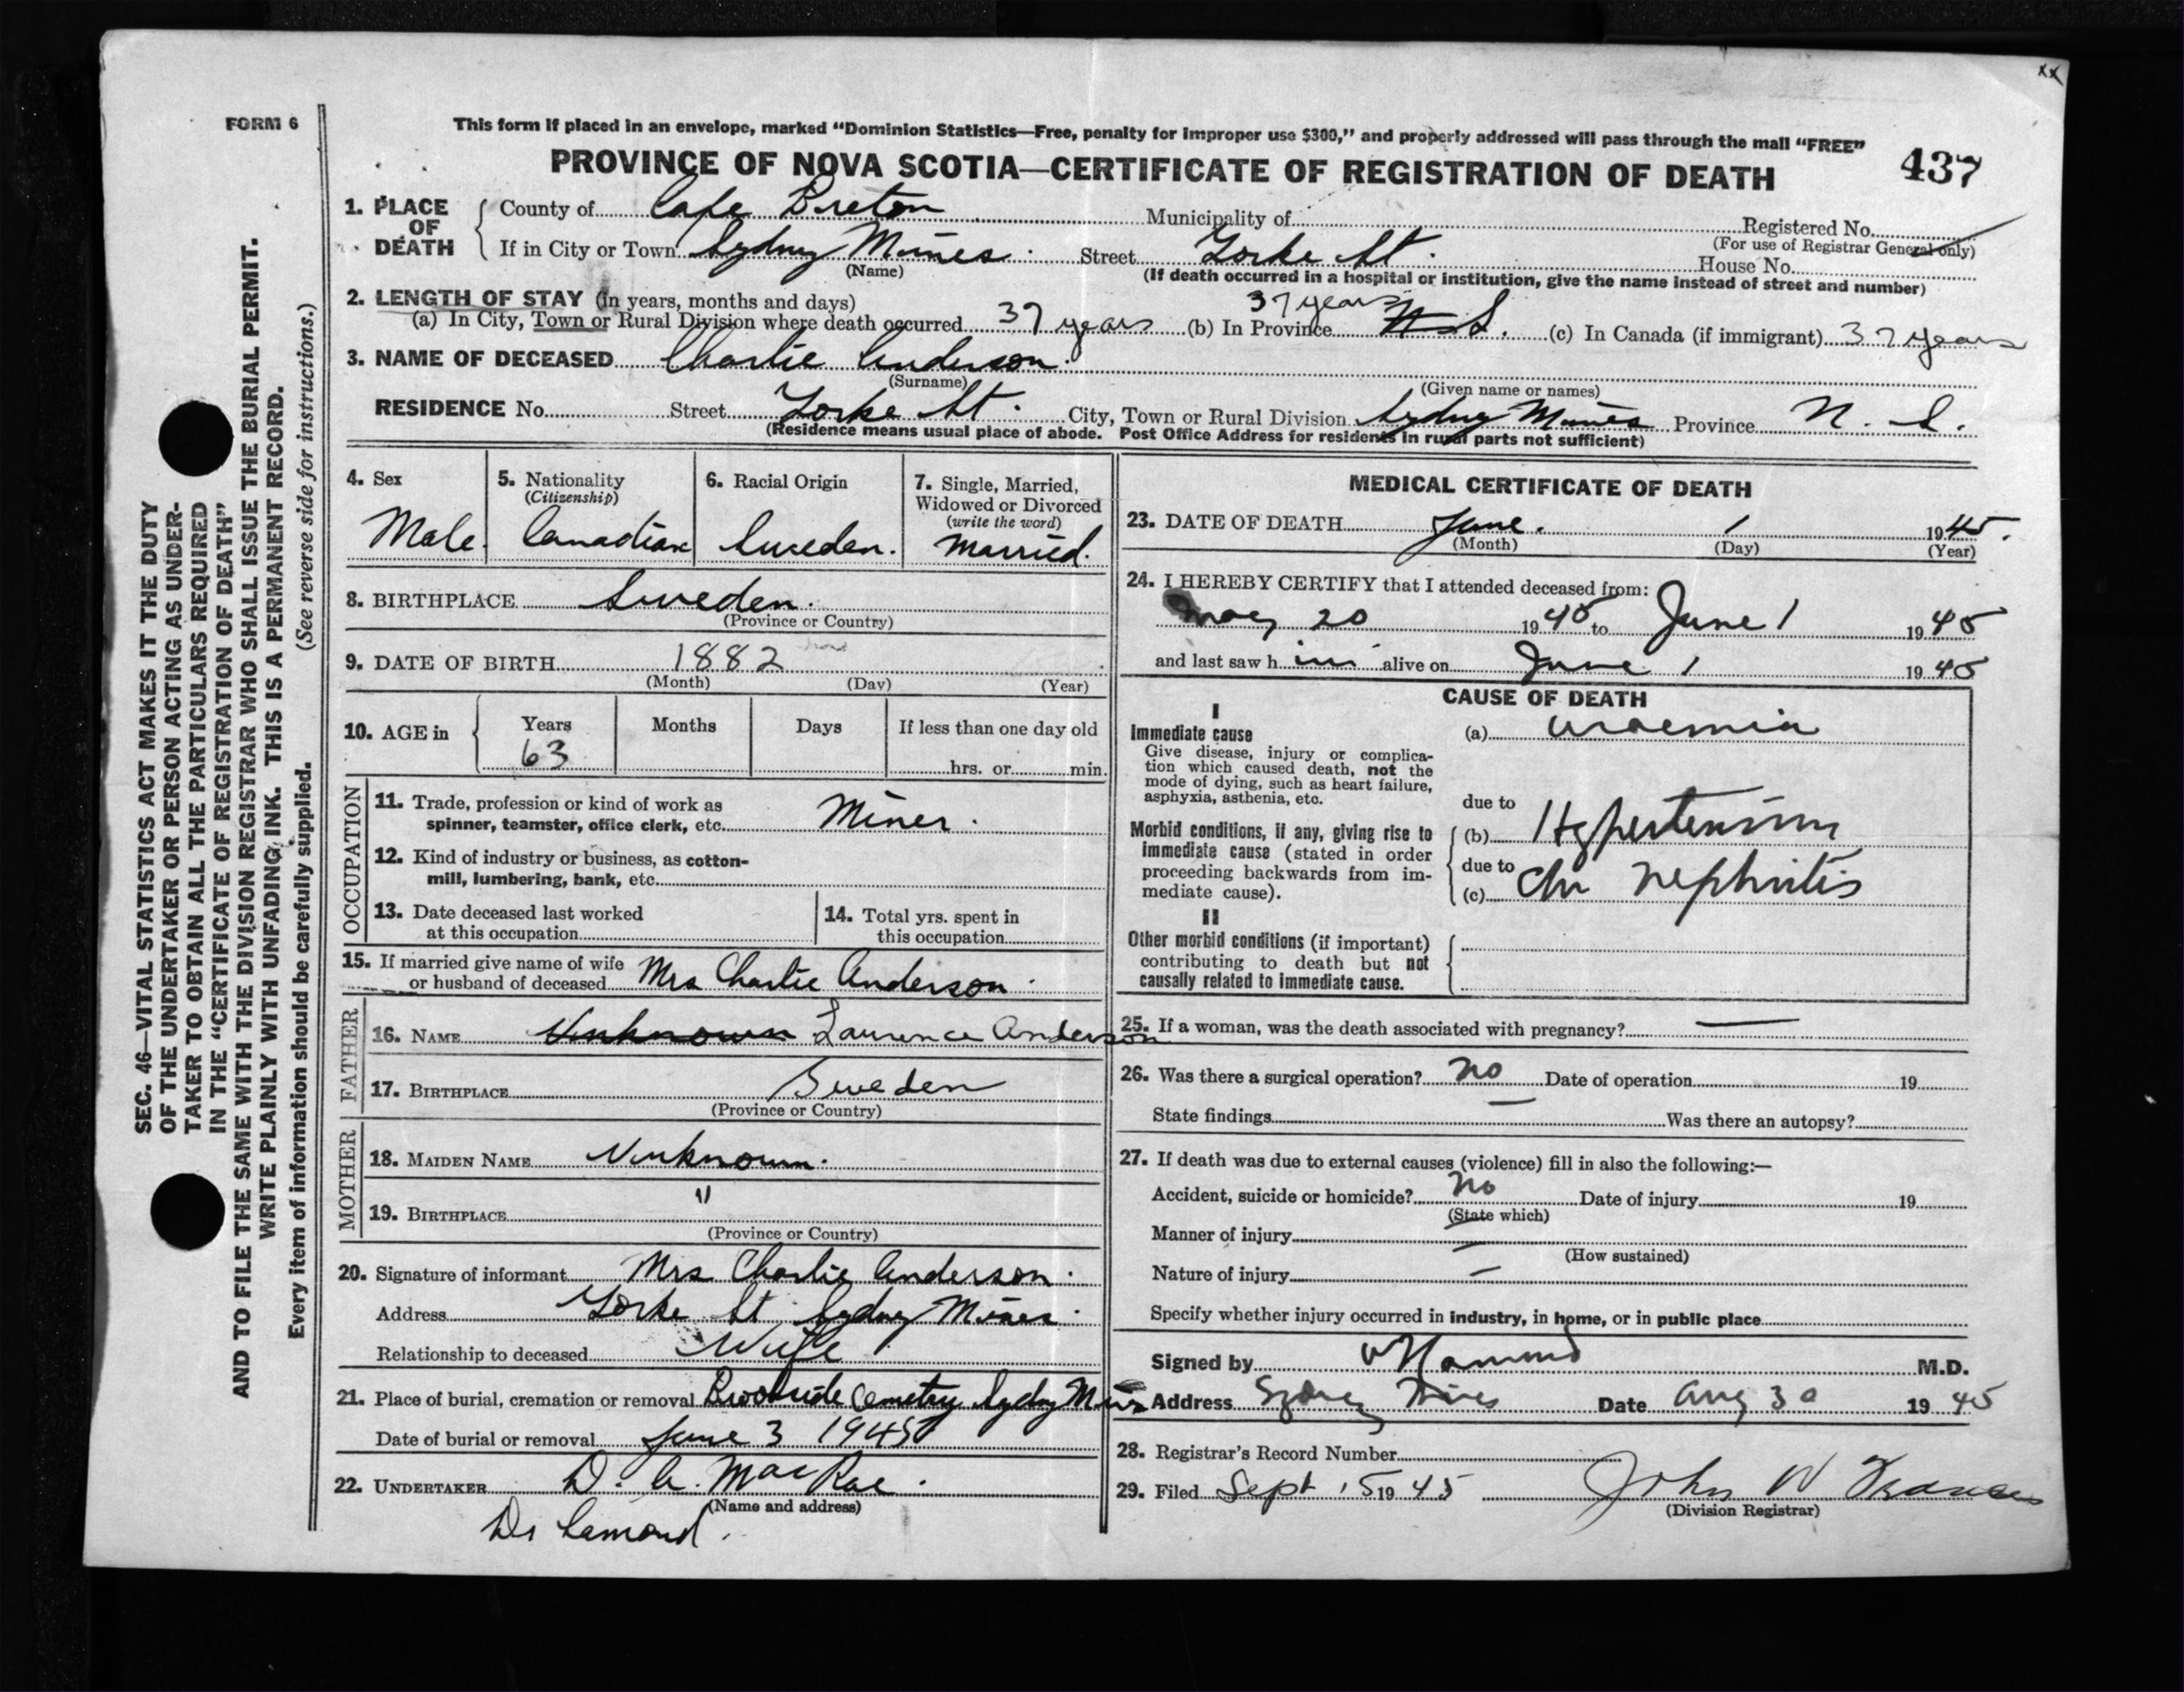 xx
FORM 6
This form if placed in an envelope, marked "Dominion Statistics—Free, penalty for improper use $300," and properly addressed will pass through the mail "FREE"
PROVINCE OF NOVA SCOTIA—CERTIFICATE OF REGISTRATION OF DEATH 437
1. PLACE OF DEATH
County of Cape Breton Municipality of Registered No.
(For use of Registrar General only)
If in City or Town Sydney Mines Street Yorke St. House No.
(Name) (If death occurred in a hospital or institution, give the name instead of street and number)
2. LENGTH OF STAY (In years, months and days)
(a) In City, Town or Rural Division where death occurred 37 years (b) In Province 37 years N.S. (c) In Canada (if immigrant) 37 years
3. NAME OF DECEASED Charlie Anderson.
(Surname) (Given name or names)
RESIDENCE No. Street Yorke St. City, Town or Rural Division Sydney Mines Province N. S.
(Residence means usual place of abode. Post Office Address for residents in rural parts not sufficient)
4. Sex
Male.
5. Nationality
(Citizenship)
Canadian
6. Racial Origin
Sweden.
7. Single, Married,
Widowed or Divorced
(write the word)
Married.
8. BIRTHPLACE Sweden.
(Province or Country)
9. DATE OF BIRTH 1882
(Month) (Day) (Year)
10. AGE in
Years Months Days If less than one day old
63 hrs. or min.
OCCUPATION
11. Trade, profession or kind of work as
spinner, teamster, office clerk, etc. Miner.
12. Kind of industry or business, as cotton-
mill, lumbering, bank, etc.
13. Date deceased last worked
at this occupation
14. Total yrs. spent in
this occupation
15. If married give name of wife
or husband of deceased Mrs Charlie Anderson.
FATHER
16. NAME Unknown Laurence Anderson
17. BIRTHPLACE Sweden
(Province or Country)
MOTHER
18. MAIDEN NAME Unknown.
19. BIRTHPLACE "
(Province or Country)
20. Signature of informant Mrs Charlie Anderson.
Address Yorke St Sydney Mines.
Relationship to deceased Wife
21. Place of burial, cremation or removal Brookside Cemetry Sydney Mines
Date of burial or removal June 3 1945
22. UNDERTAKER D. A. MacRae.
(Name and address)
Dr
MEDICAL CERTIFICATE OF DEATH
23. DATE OF DEATH June. 1 1945.
(Month) (Day) (Year)
24. I HEREBY CERTIFY that I attended deceased from:
May 20 1945 to June 1 1945
and last saw him alive on June 1 1945
CAUSE OF DEATH
I
Immediate cause
Give disease, injury or complica-
tion which caused death, not the
mode of dying, such as heart failure,
asphyxia, asthenia, etc.
(a) uraemia
due to
Morbid conditions, if any, giving rise to
immediate cause (stated in order
proceeding backwards from im-
mediate cause).
(b) Hypertension
due to
(c) Chr nephritis
II
Other morbid conditions (if important)
contributing to death but not
causally related to immediate cause.
25. If a woman, was the death associated with pregnancy? —
26. Was there a surgical operation? no Date of operation 19
State findings — Was there an autopsy?
27. If death was due to external causes (violence) fill in also the following:—
Accident, suicide or homicide? no Date of injury 19
(State which)
Manner of injury —
(How sustained)
Nature of injury —
Specify whether injury occurred in industry, in home, or in public place
Signed by M.D.
Address Sydney Mines Date Aug 30 1945
28. Registrar's Record Number
29. Filed Sept 15 1945 John W
(Division Registrar)
SEC. 46—VITAL STATISTICS ACT MAKES IT THE DUTY
OF THE UNDERTAKER OR PERSON ACTING AS UNDER-
TAKER TO OBTAIN ALL THE PARTICULARS REQUIRED
IN THE "CERTIFICATE OF REGISTRATION OF DEATH"
AND TO FILE THE SAME WITH THE DIVISION REGISTRAR WHO SHALL ISSUE THE BURIAL PERMIT.
WRITE PLAINLY WITH UNFADING INK. THIS IS A PERMANENT RECORD.
Every item of information should be carefully supplied. (See reverse side for instructions.)